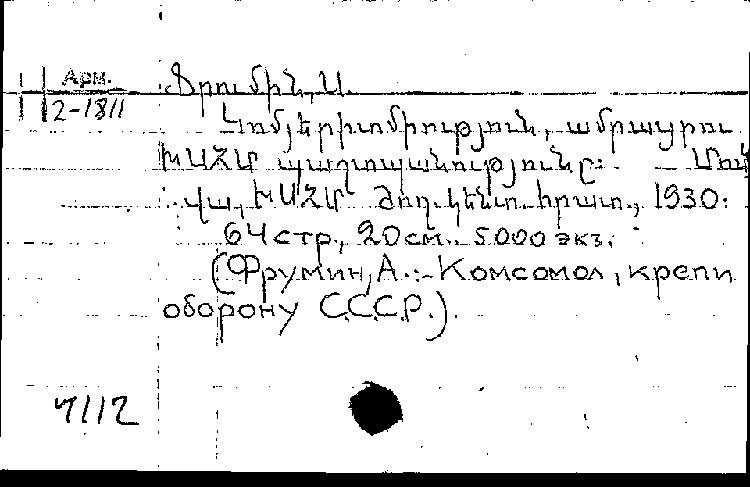 Арм.
2-1811
Ֆրումին, Ա.
Կոմյերիտմիություն, ամրապրու
ԽՍՀՄ պաշտպանությունը։ Մոս
վա, ԽՍՀՄ ժող. կենտ. հրատ., 1930։
64 стр., 20 см. 5000 экз.
(Фрумин, А. :- Комсомол, крепи
оборону С.С.С.Р.).
7112